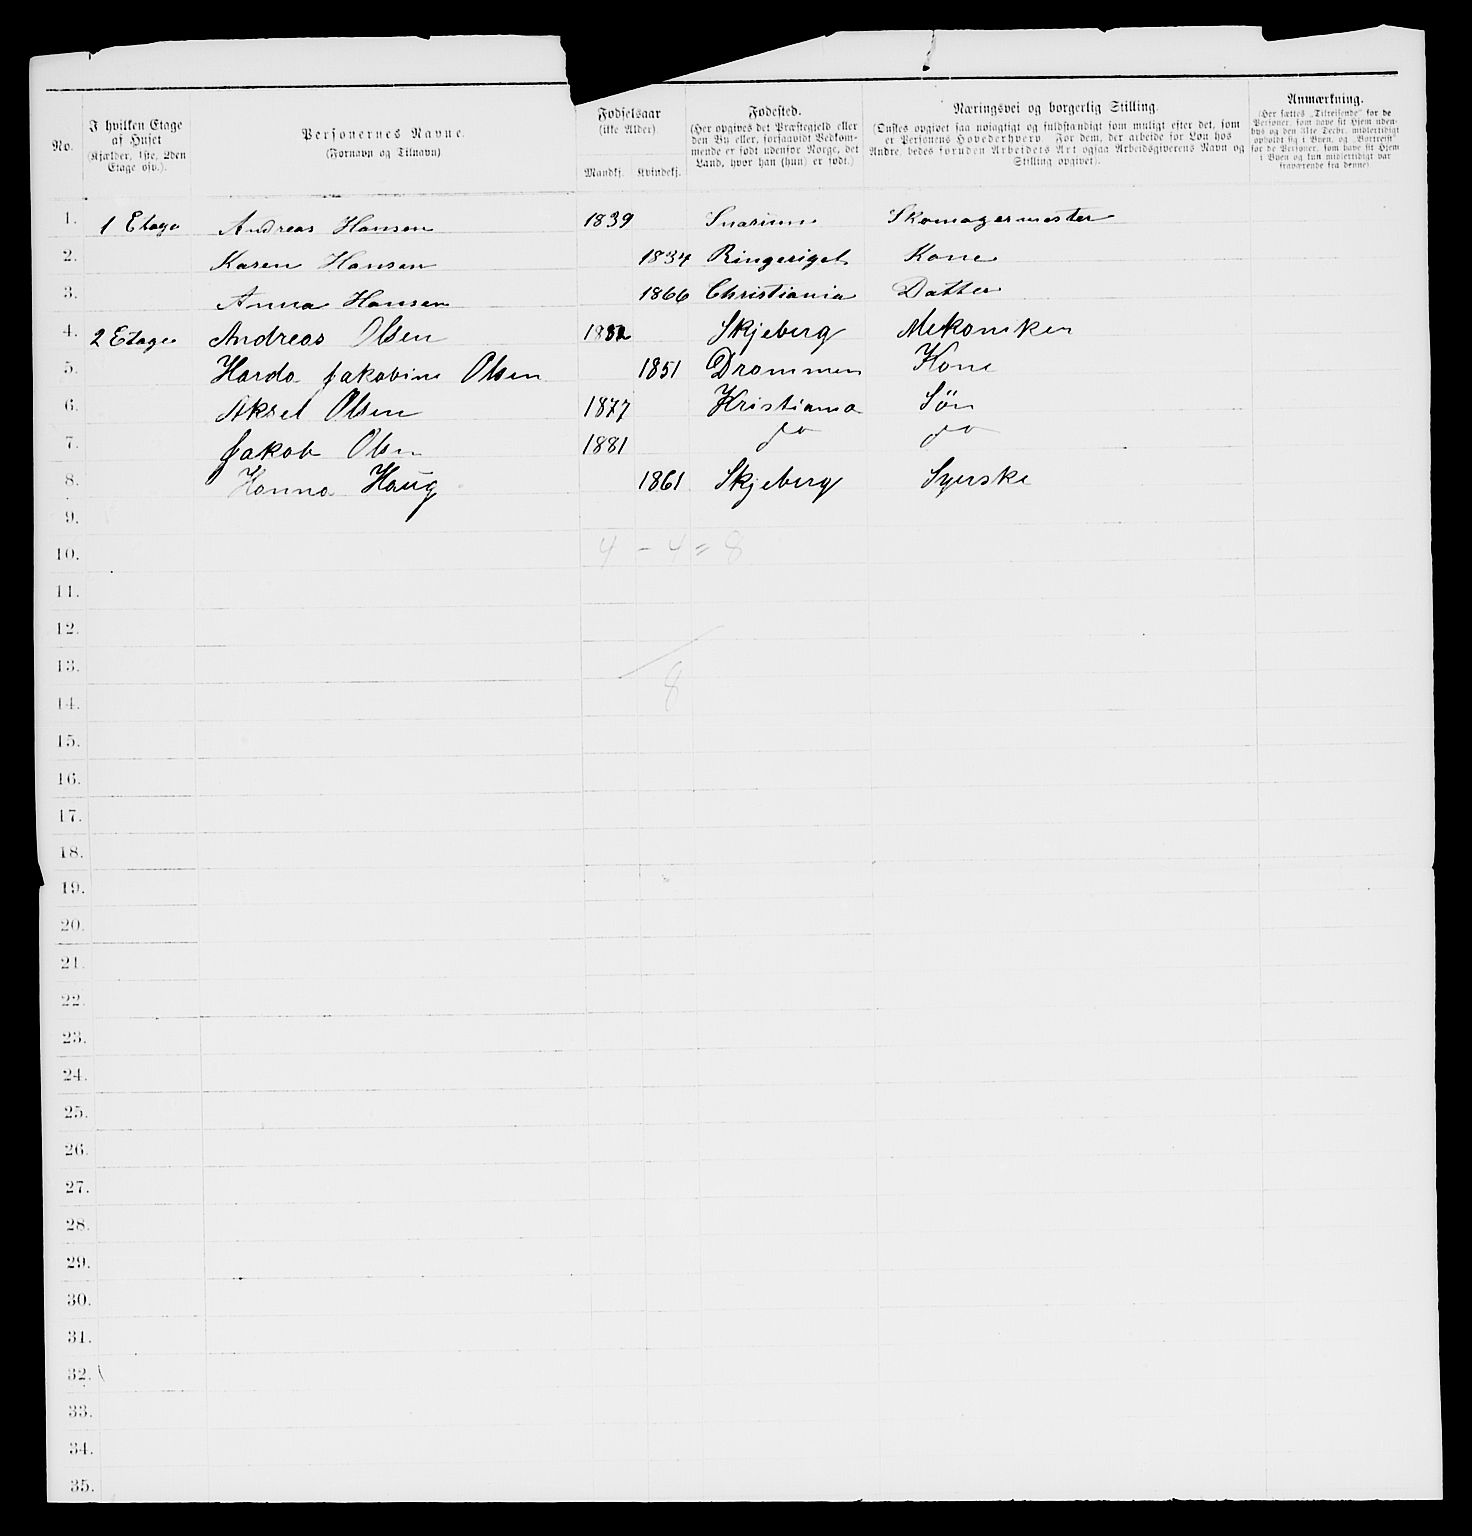 No.
I hvilken Etage
af Huset
(Kjælder, 1ste, 2den
Etage osv.).
Personernes Navne.
(Fornavn og Tilnavn)
Fødselsaar
(ikke Alder)
Mandkj.
Kvindekj.
Fødested.
(Her opgives det Præstegjeld eller
den By eller, forsaavidt Vedkom-
mende er født udenfor Norge, det
Land, hvor han (hun) er født.)
Næringsvei og borgerlig Stilling.
(Ønskes opgivet saa nøiagtigt og fuldstændigt som muligt efter det, som
er Personens Hovederhverv. For dem, der arbeide for Løn hos
Andre, bedes foruden Arbeidets Art ogsaa Arbeidsgiverens Navn og
Stilling opgivet).
Anmærkning.
(Her sættes „Tilreisende“ for de
Personer, som have sit Hjem uden-
bys og den 31te Decbr. midlertidigt
opholdt sig i Byen, og „Bortreist“
for de Personer, som have sit Hjem
i Byen og kun midlertidigt var
fraværende fra denne)
1. 1 Etage Andreas Hansen 1839 Snarum Skomagermester
2. Karen Hansen 1834 Ringeriget Kone
3. Anna Hansen 1866 Christiania Datter
4. 2 Etage Andreas Olsen Skjeberg Mekaniker
5. Harda Jakobine Olsen 1851 Drammen Kone
6. Aksel Olsen 1877 Kristiania Søn
7. Jakob Olsen 1881 do do
8. Hanna Haug 1861 Skjeberg Syerske
9.
10. 4 - 4 = 8
11.
12.
13.
8
14.
15.
16.
17.
18.
19.
20.
21.
22.
23.
24.
25.
26.
27.
28.
29.
30.
31.
32.
33.
34.
35.